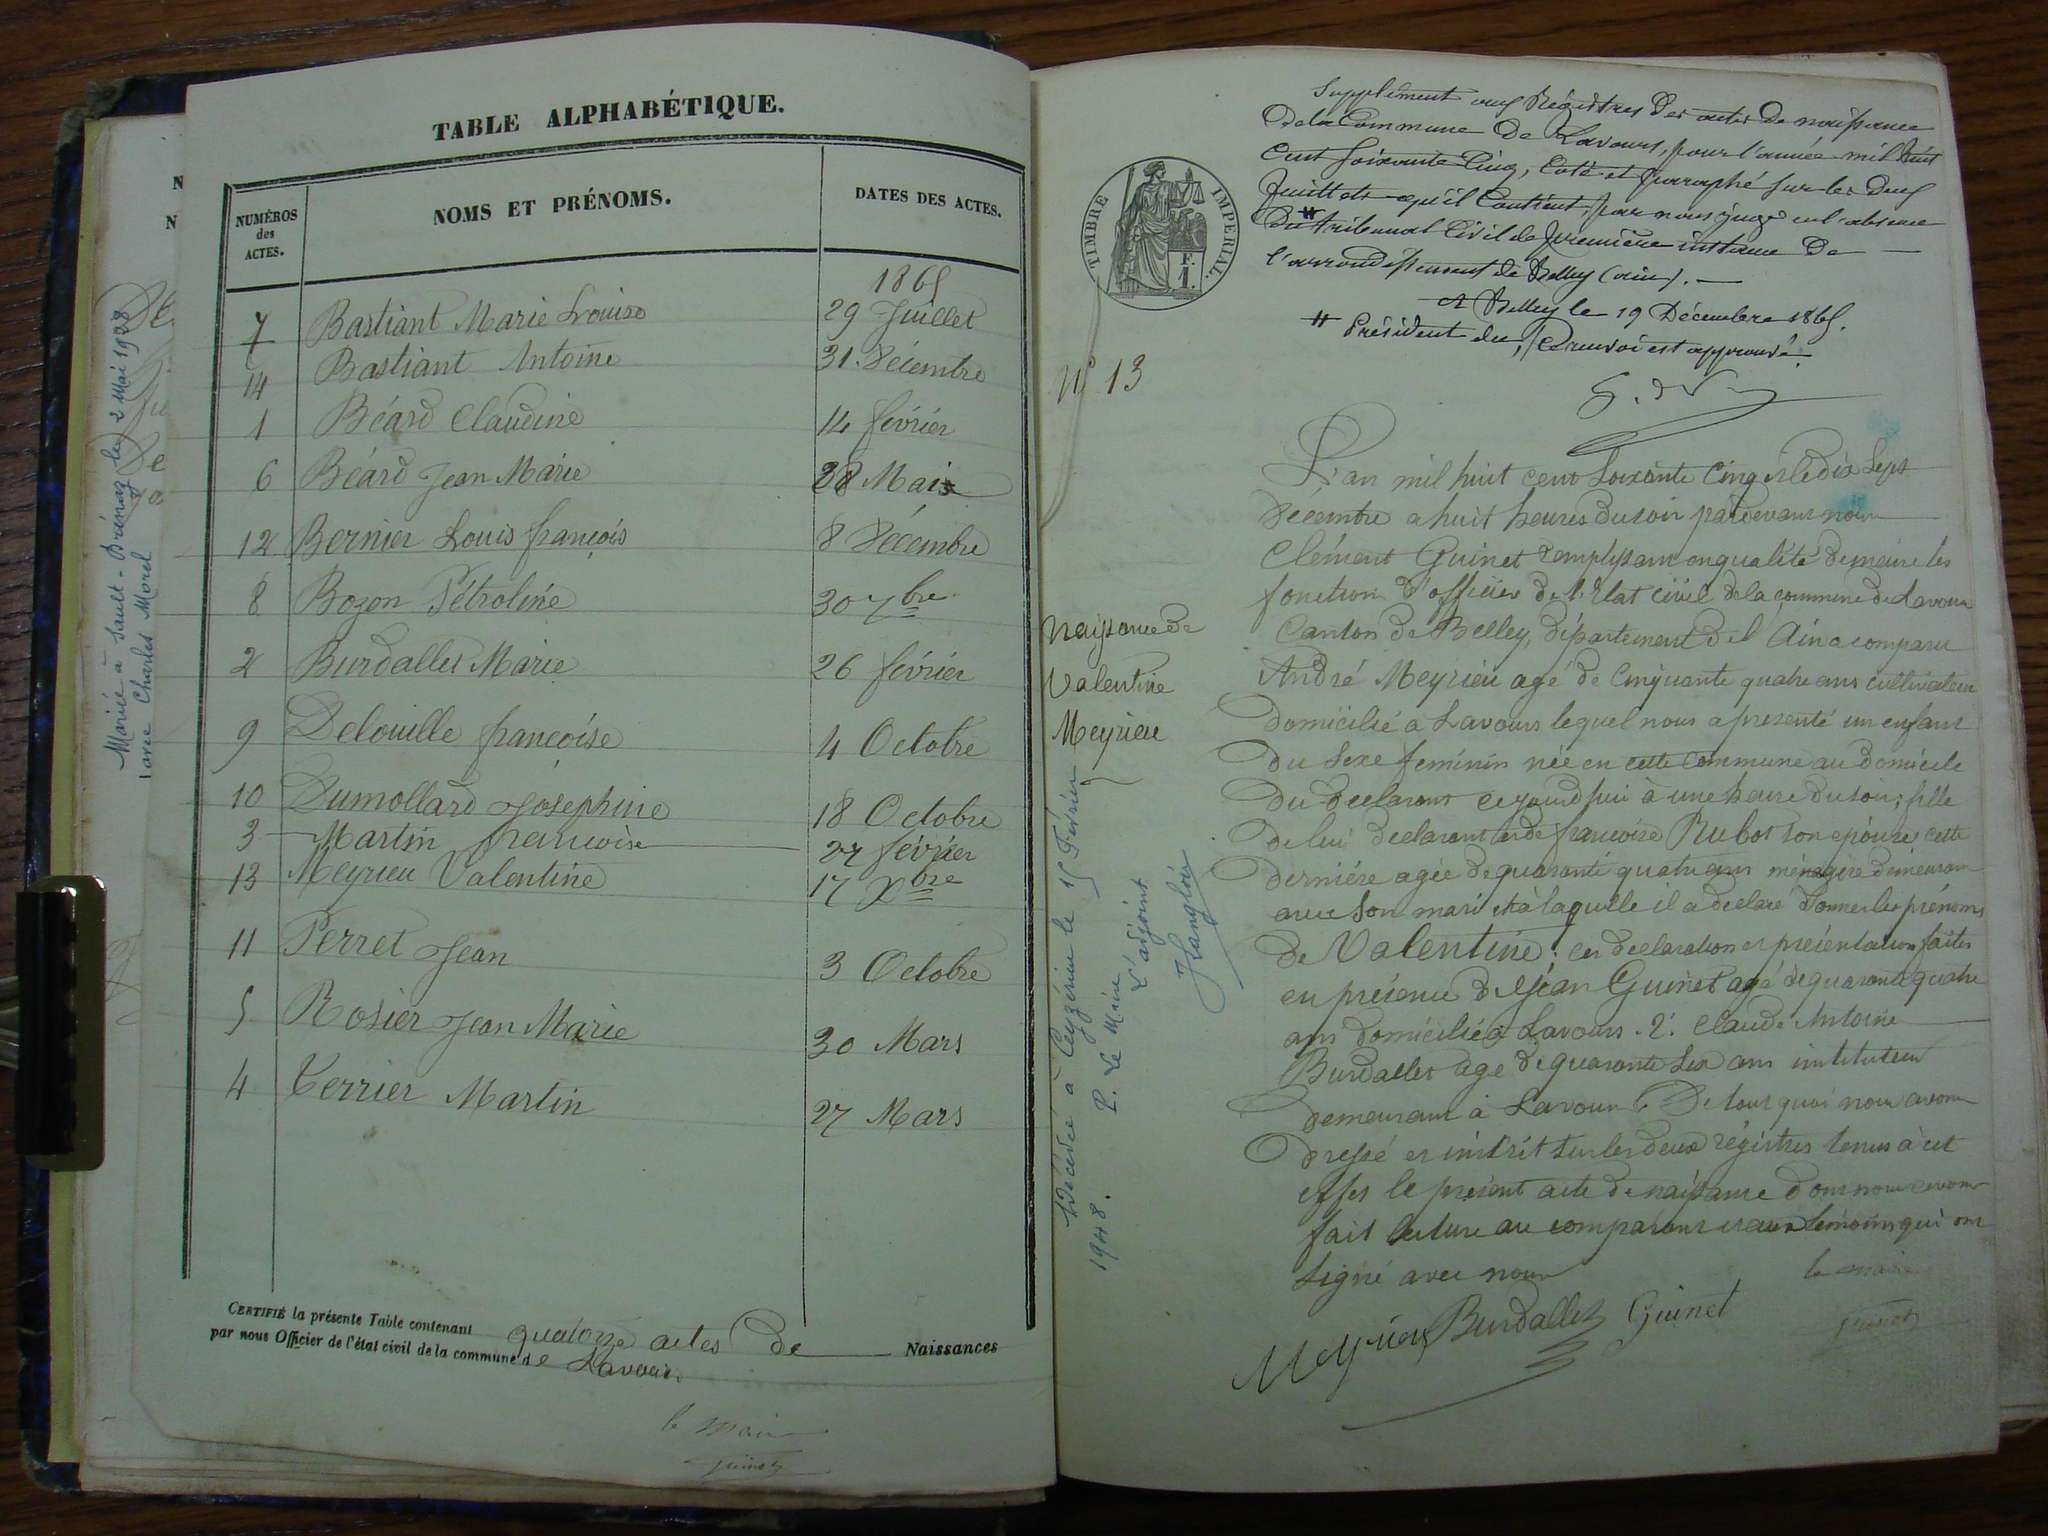 Mariée à Sault-Brénaz le 2 Mai 1928
avec Charles Morel
TABLE ALPHABÉTIQUE.
NUMÉROS des ACTES.
NOMS ET PRÉNOMS.
DATES DES ACTES.
1865
7 Bastiant Marie Louise 29 Juillet
14 Bastiant Antoine 31 Décembre
1 Béard Claudine 14 février
6 Béard Jean Marie 28 Mai
12 Bernier Louis françois 8 Décembre
8 Bozon Pétroline 30 7bre
2 Burdallet Marie 26 février
9 Delouille françoise 4 Octobre
10 Dumollard Joséphine 18 Octobre
3 Martin francoise 27 février
13 Meyrieu Valentine 17 Xbre
11 Perret Jean 3 Octobre
5 Rosier Jean Marie 30 Mars
4 Terrier Martin 27 Mars
CERTIFIÉ la présente Table contenant quatorze actes de Naissances
par nous Officier de l'état civil de la commune de Lavours
le Maire
Guinet
Supplément aux Régistres des actes de naissance
de la Commune de Lavours, pour l'année mil huit
cent soixante cinq, coté et paraphé sur les deux
feuillets qu'il contient, par nous juge en l'absence
du # tribunal civil de première instance de
l'arrondissement de Belley (ain).
A Belley le 19 Décembre 1865.
# Président du, Ce renvoi est approuvé.
TIMBRE IMPERIAL.
F.
1.
N° 13
Naissance de
Valentine
Meyrieu
L'an mil huit cent soixante cinq et le dix sept
Décembre a huit heures du soir pardevant nous
Clément Guinet remplissant en qualité de maire les
fonction d'officier de l'Etat civil de la commune de Lavours
Canton de Belley, département de l'Ain a comparu
André Meyrieu agé de cinquante quatre ans cultivateur
domicilié a Lavours lequel nous a presenté un enfant
du sexe feminin née en cette commune au domicile
du declarant cejourd'hui à une heure du soir; fille
de lui declarant et de francoise Rubot son epouse cette
derniére agée de quarante quatre ans ménagère demeurant
avec son mari et à laquelle il a declaré donner les prénoms
de Valentine; ces declaration et présentation faites
en présence de Jéan Guinet agé de quarante quatre
ans domicilié a Lavours. 2°. Claude Antoine
Burdallet agé de quarante six ans instituteur
demeurant à Lavours. De tout quoi nous avons
dressé et inscrit sur les deux régistres tenus à cet
effet le présent acte de naissance dont nous avons
fait lecture au comparant et aux témoins qui ont
signé avec nous
le maire
Meyrieu Burdallet Guinet
Guinet
Décédée à Ceyzérieu le 15 Février
1948. P. Le Maire
L'adjoint